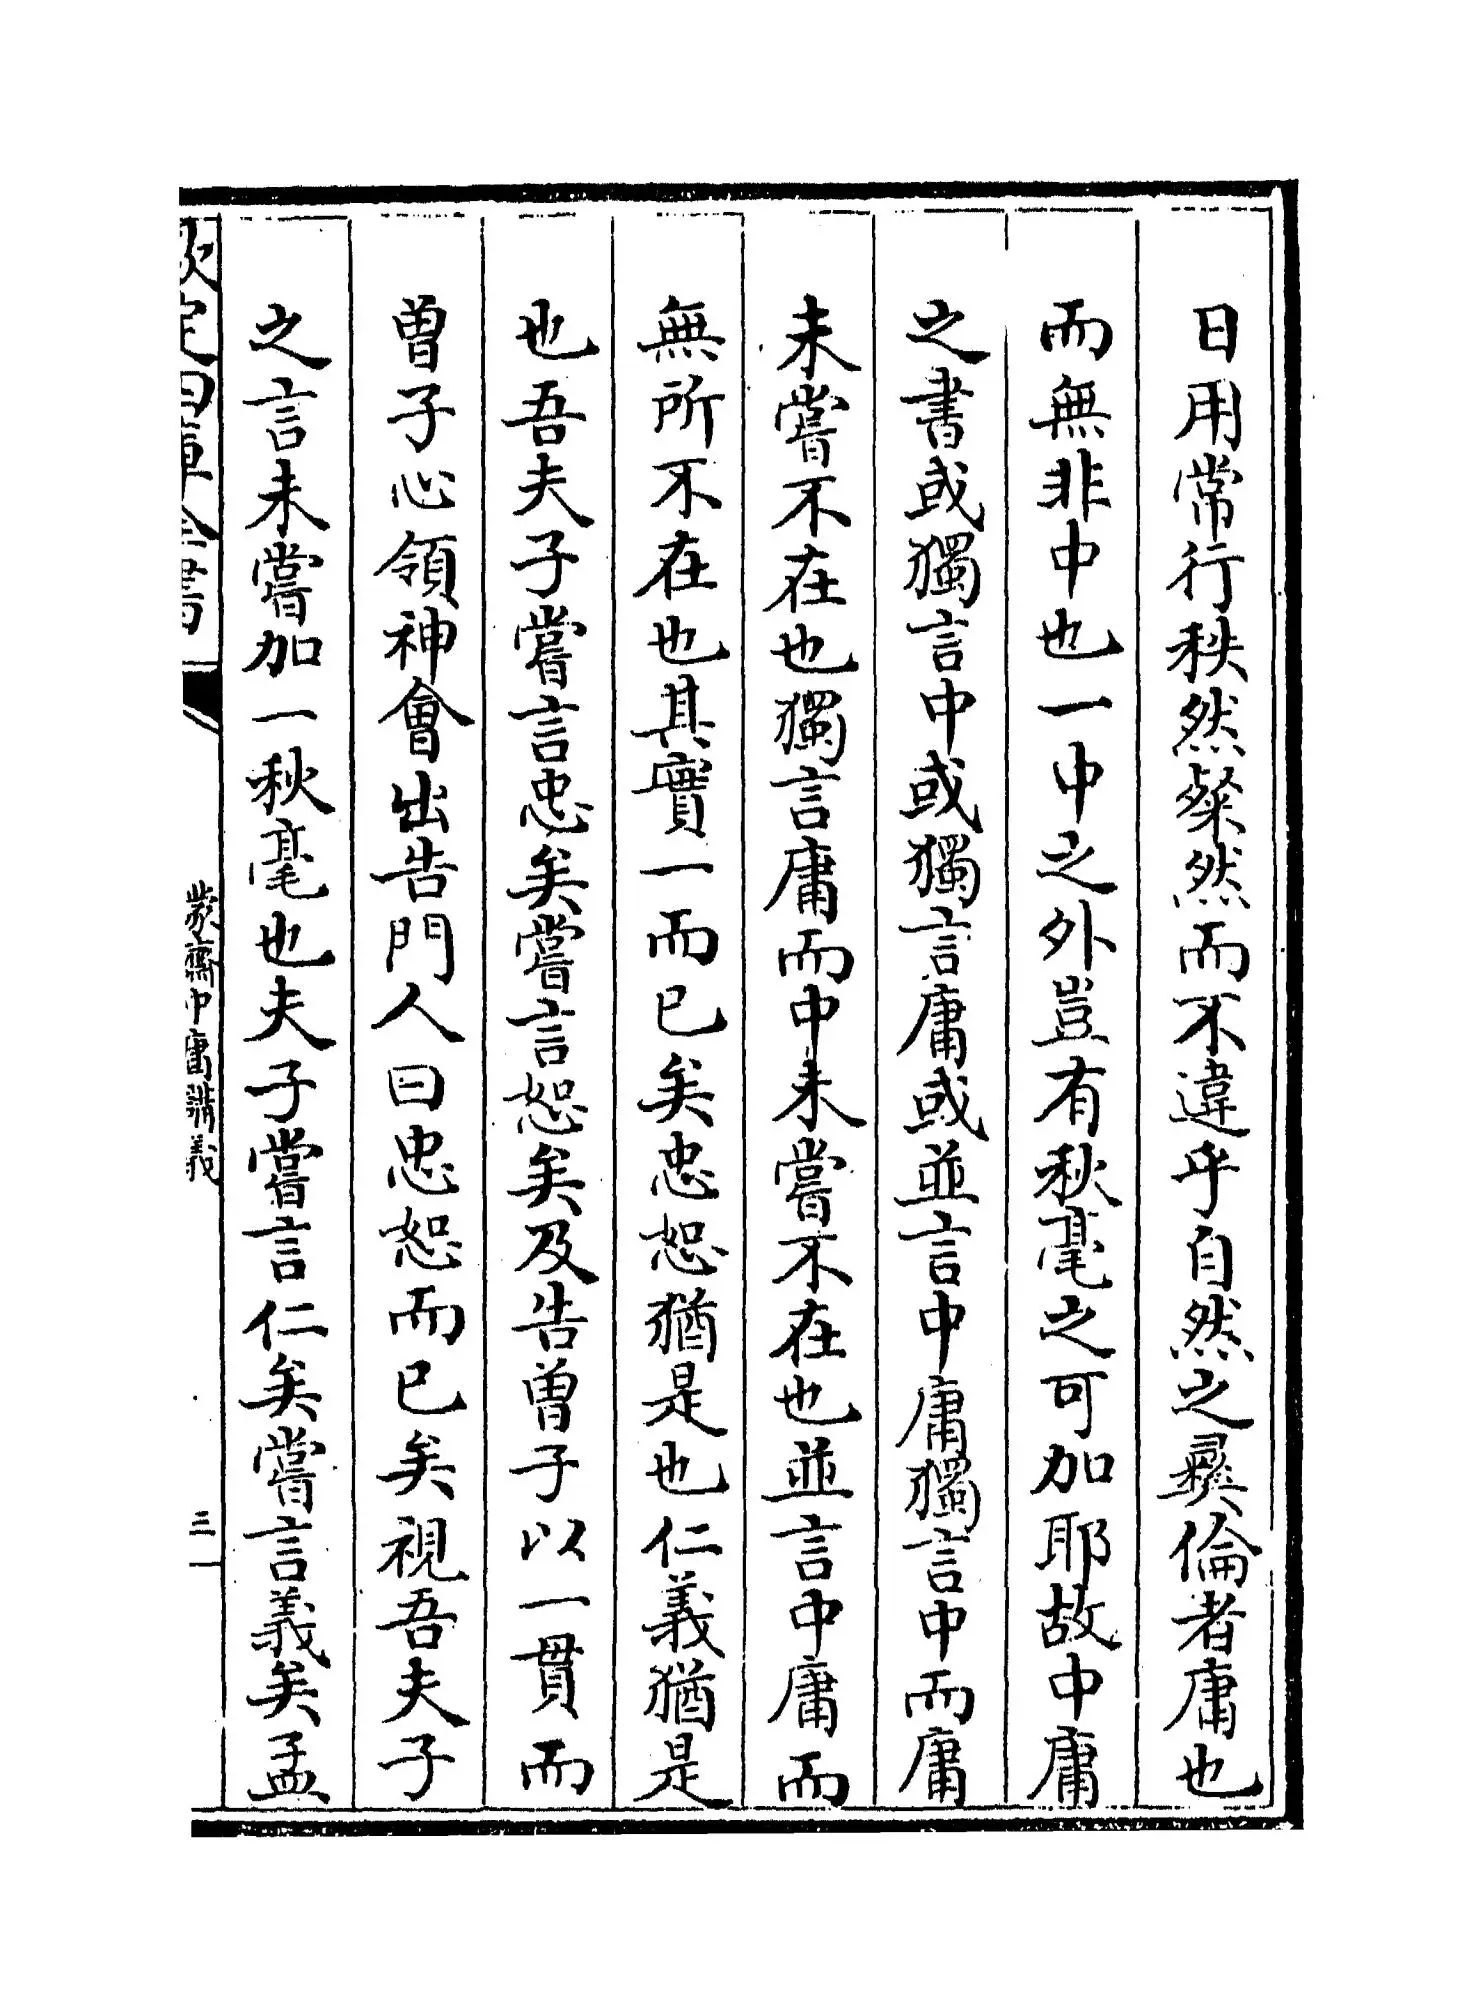 日用常行秩然粲然而不違乎自然之彛倫者庸也
而無非中也一中之外豈有秋毫之可加耶故中庸
之書或獨言中或獨言庸或並言中庸獨言中而庸
未嘗不在也獨言庸而中未嘗不在也並言中庸而
無所不在也其實一而已矣忠恕猶是也仁義猶是
也吾夫子嘗言忠矣嘗言恕矣及告曽子以一貫而
曽子心領神會出告門人曰忠恕而已矣視吾夫子
之言未嘗加一秋毫也夫子嘗言仁矣嘗言義矣孟
欽定四庫全書
蒙齋中庸講義
三